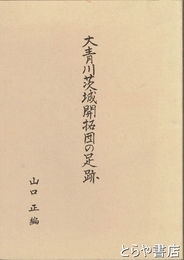 大青川茨城開拓団の足跡
山口 正編
とらや書店